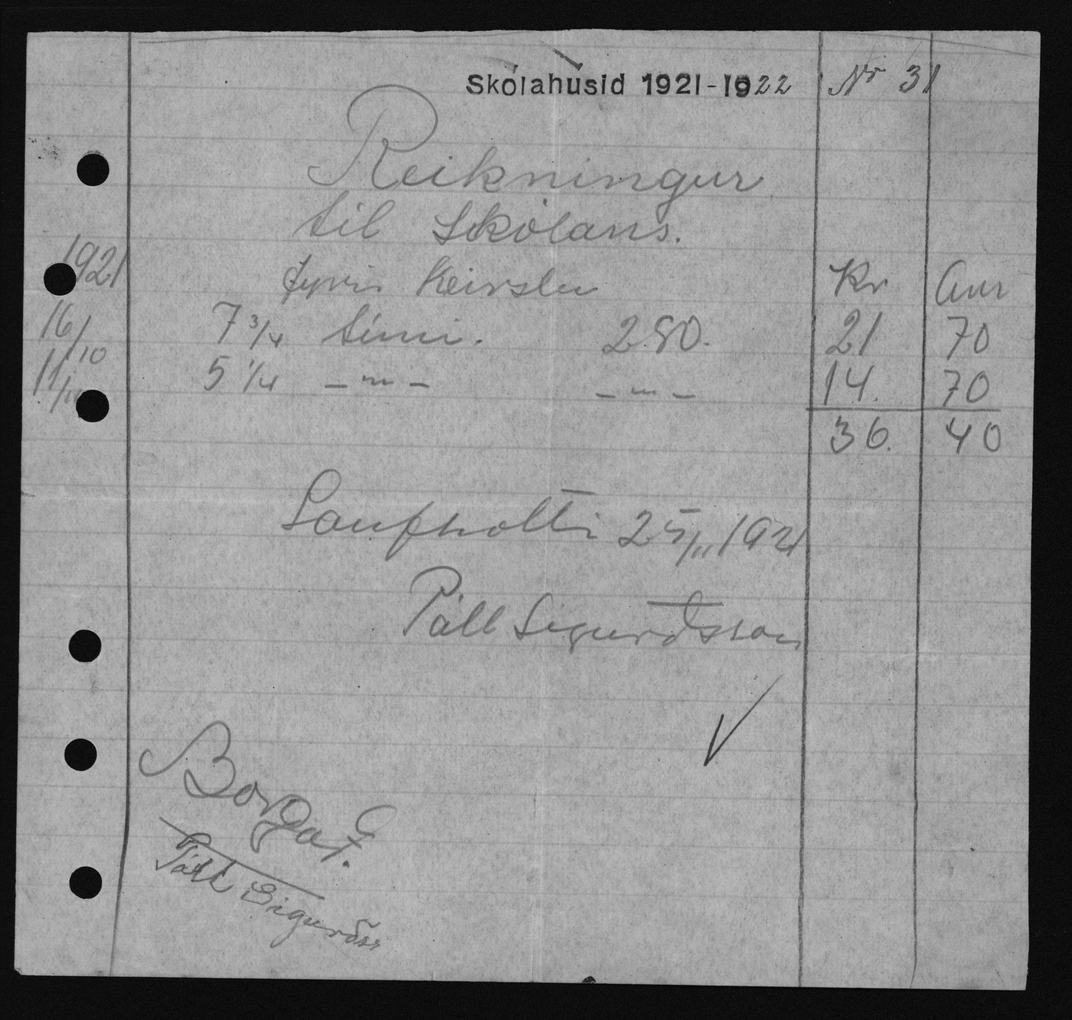 Skólahúsid 1921-1922 Nr 31
Reikningur
til Skólans.
1921 fyrir keirslu Kr Aur
16/10 7 3/4 tími. 2.80. 21 70
11/11 5 1/4 — " — — " — 14. 70
36. 40
Laufholti 25/11 1921
Páll Sigurðsson
Borgað.
Páll Sigurðss